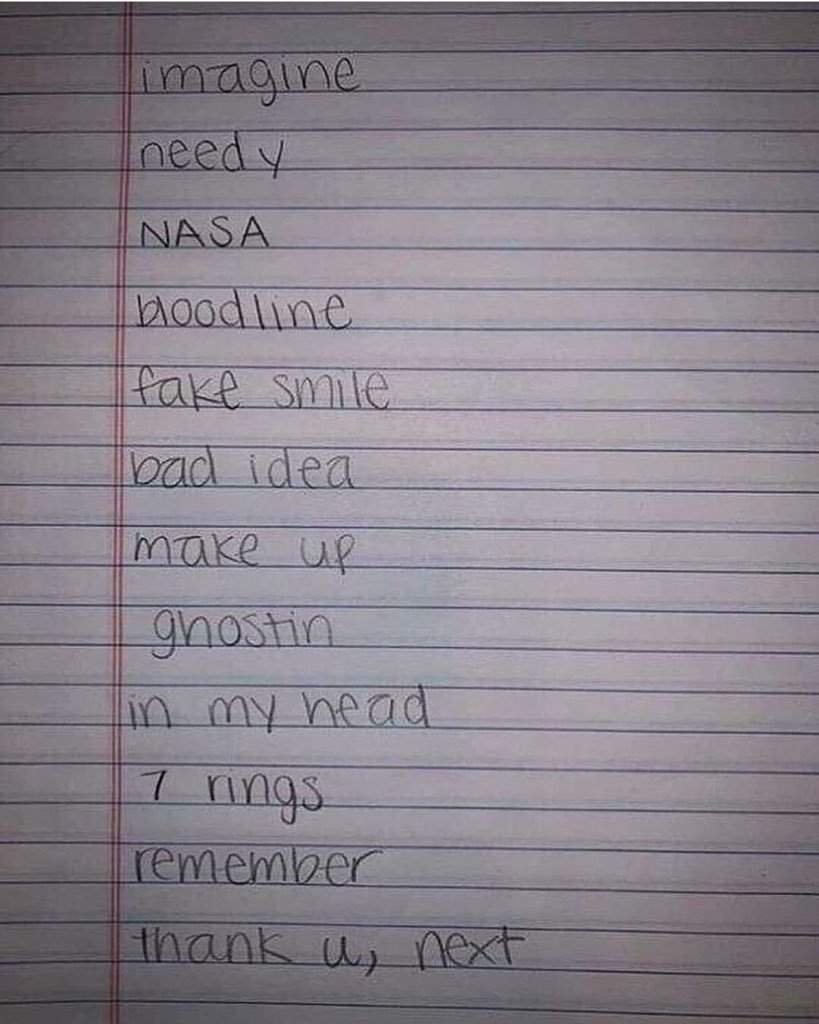 imagine
needy
NASA
bloodline
fake smile
bad idea
make up
ghostin
in my head
7 rings
remember
thank u, next